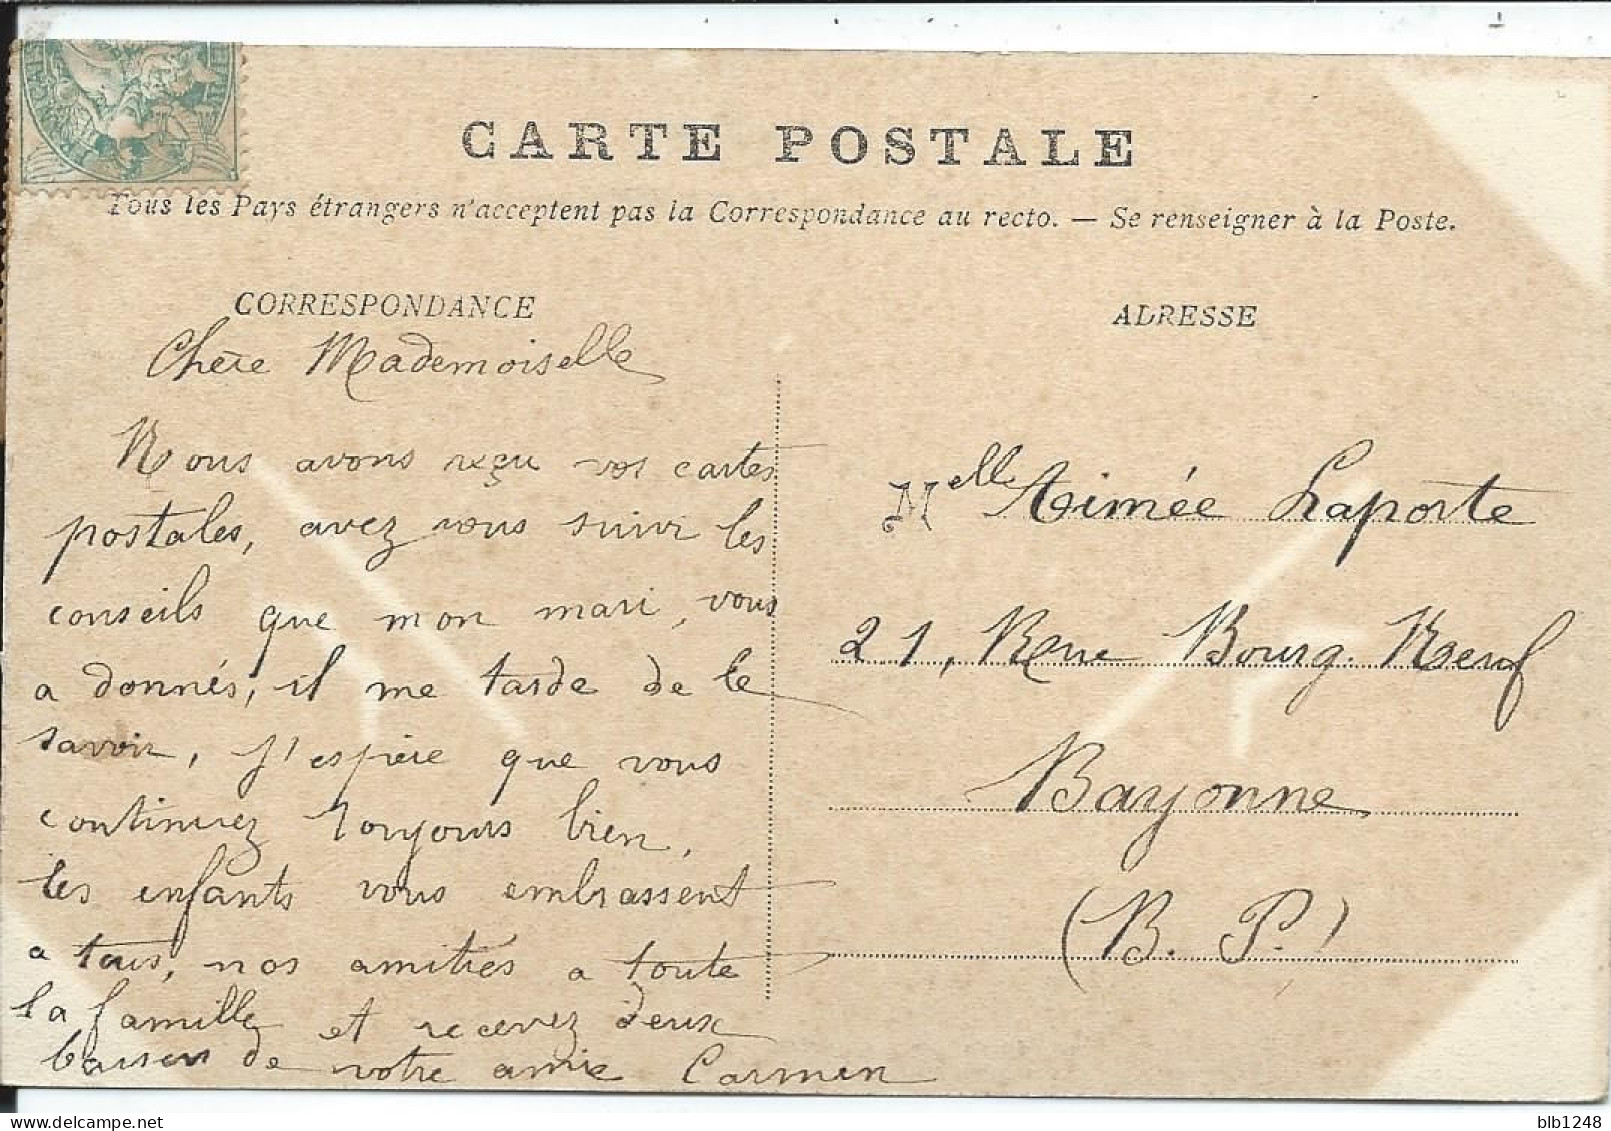 CARTE POSTALE
Tous les Pays étrangers n'acceptent pas la Correspondance au recto. — Se renseigner à la Poste.
CORRESPONDANCE
Chère Mademoiselle
Nous avons reçu vos cartes
postales, avez vous suivi les
conseils que mon mari, vous
a donnés, il me tarde de le
savoir, j'espère que vous
continuez toujours bien,
les enfants vous embrassent
a tous, nos amitiés a toute
la famille et recevez deux
baisers de votre amie Carmen
ADRESSE
Melle Aimée Laporte
21, Rue Bourg. Neuf
Bayonne
(B. P.)
blb1248